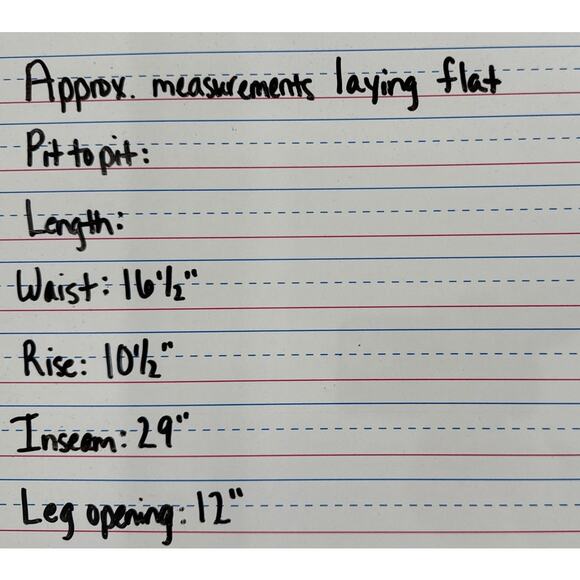 Approx. measurements laying flat
Pit to pit:
Length:
Waist: 16 1/2"
Rise: 10 1/2"
Inseam: 29"
Leg opening: 12"